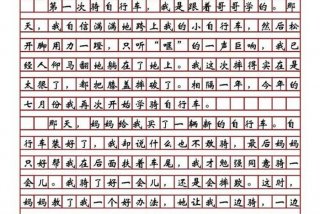 第一次骑自行车，我是跟着哥哥学的。那
天，我自信满满地跨上我的小自行车，然后松
开脚用力一蹬，只听“哐”的一声巨响，我已
经人仰马翻地躺在了地上。我这次摔得实在是
太狠了，都把膝盖摔破了。相隔一年，今年的
七月份我再次开始学骑自行车。
那天，妈妈给我买了一辆新的自行车。自
行车装好了，我却说什么也不敢骑，最后妈妈
只好帮我在后面扶着车尾，我才勉强同意骑一
会儿。我骑了好一会儿，还会摔跤。这时，妈
妈教了我一个好办法，她让我一边骑，一边